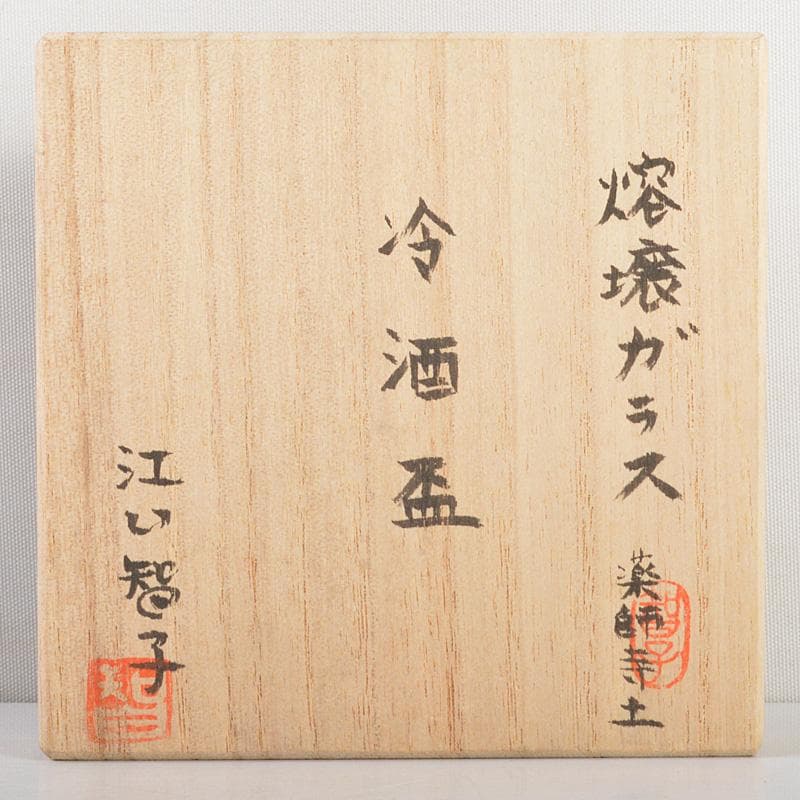 熔壌ガラス 薬師寺土
冷酒盃
江い智子